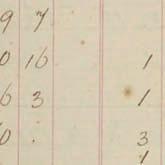 9 7
0 16 1
6 3 1
0 . 3